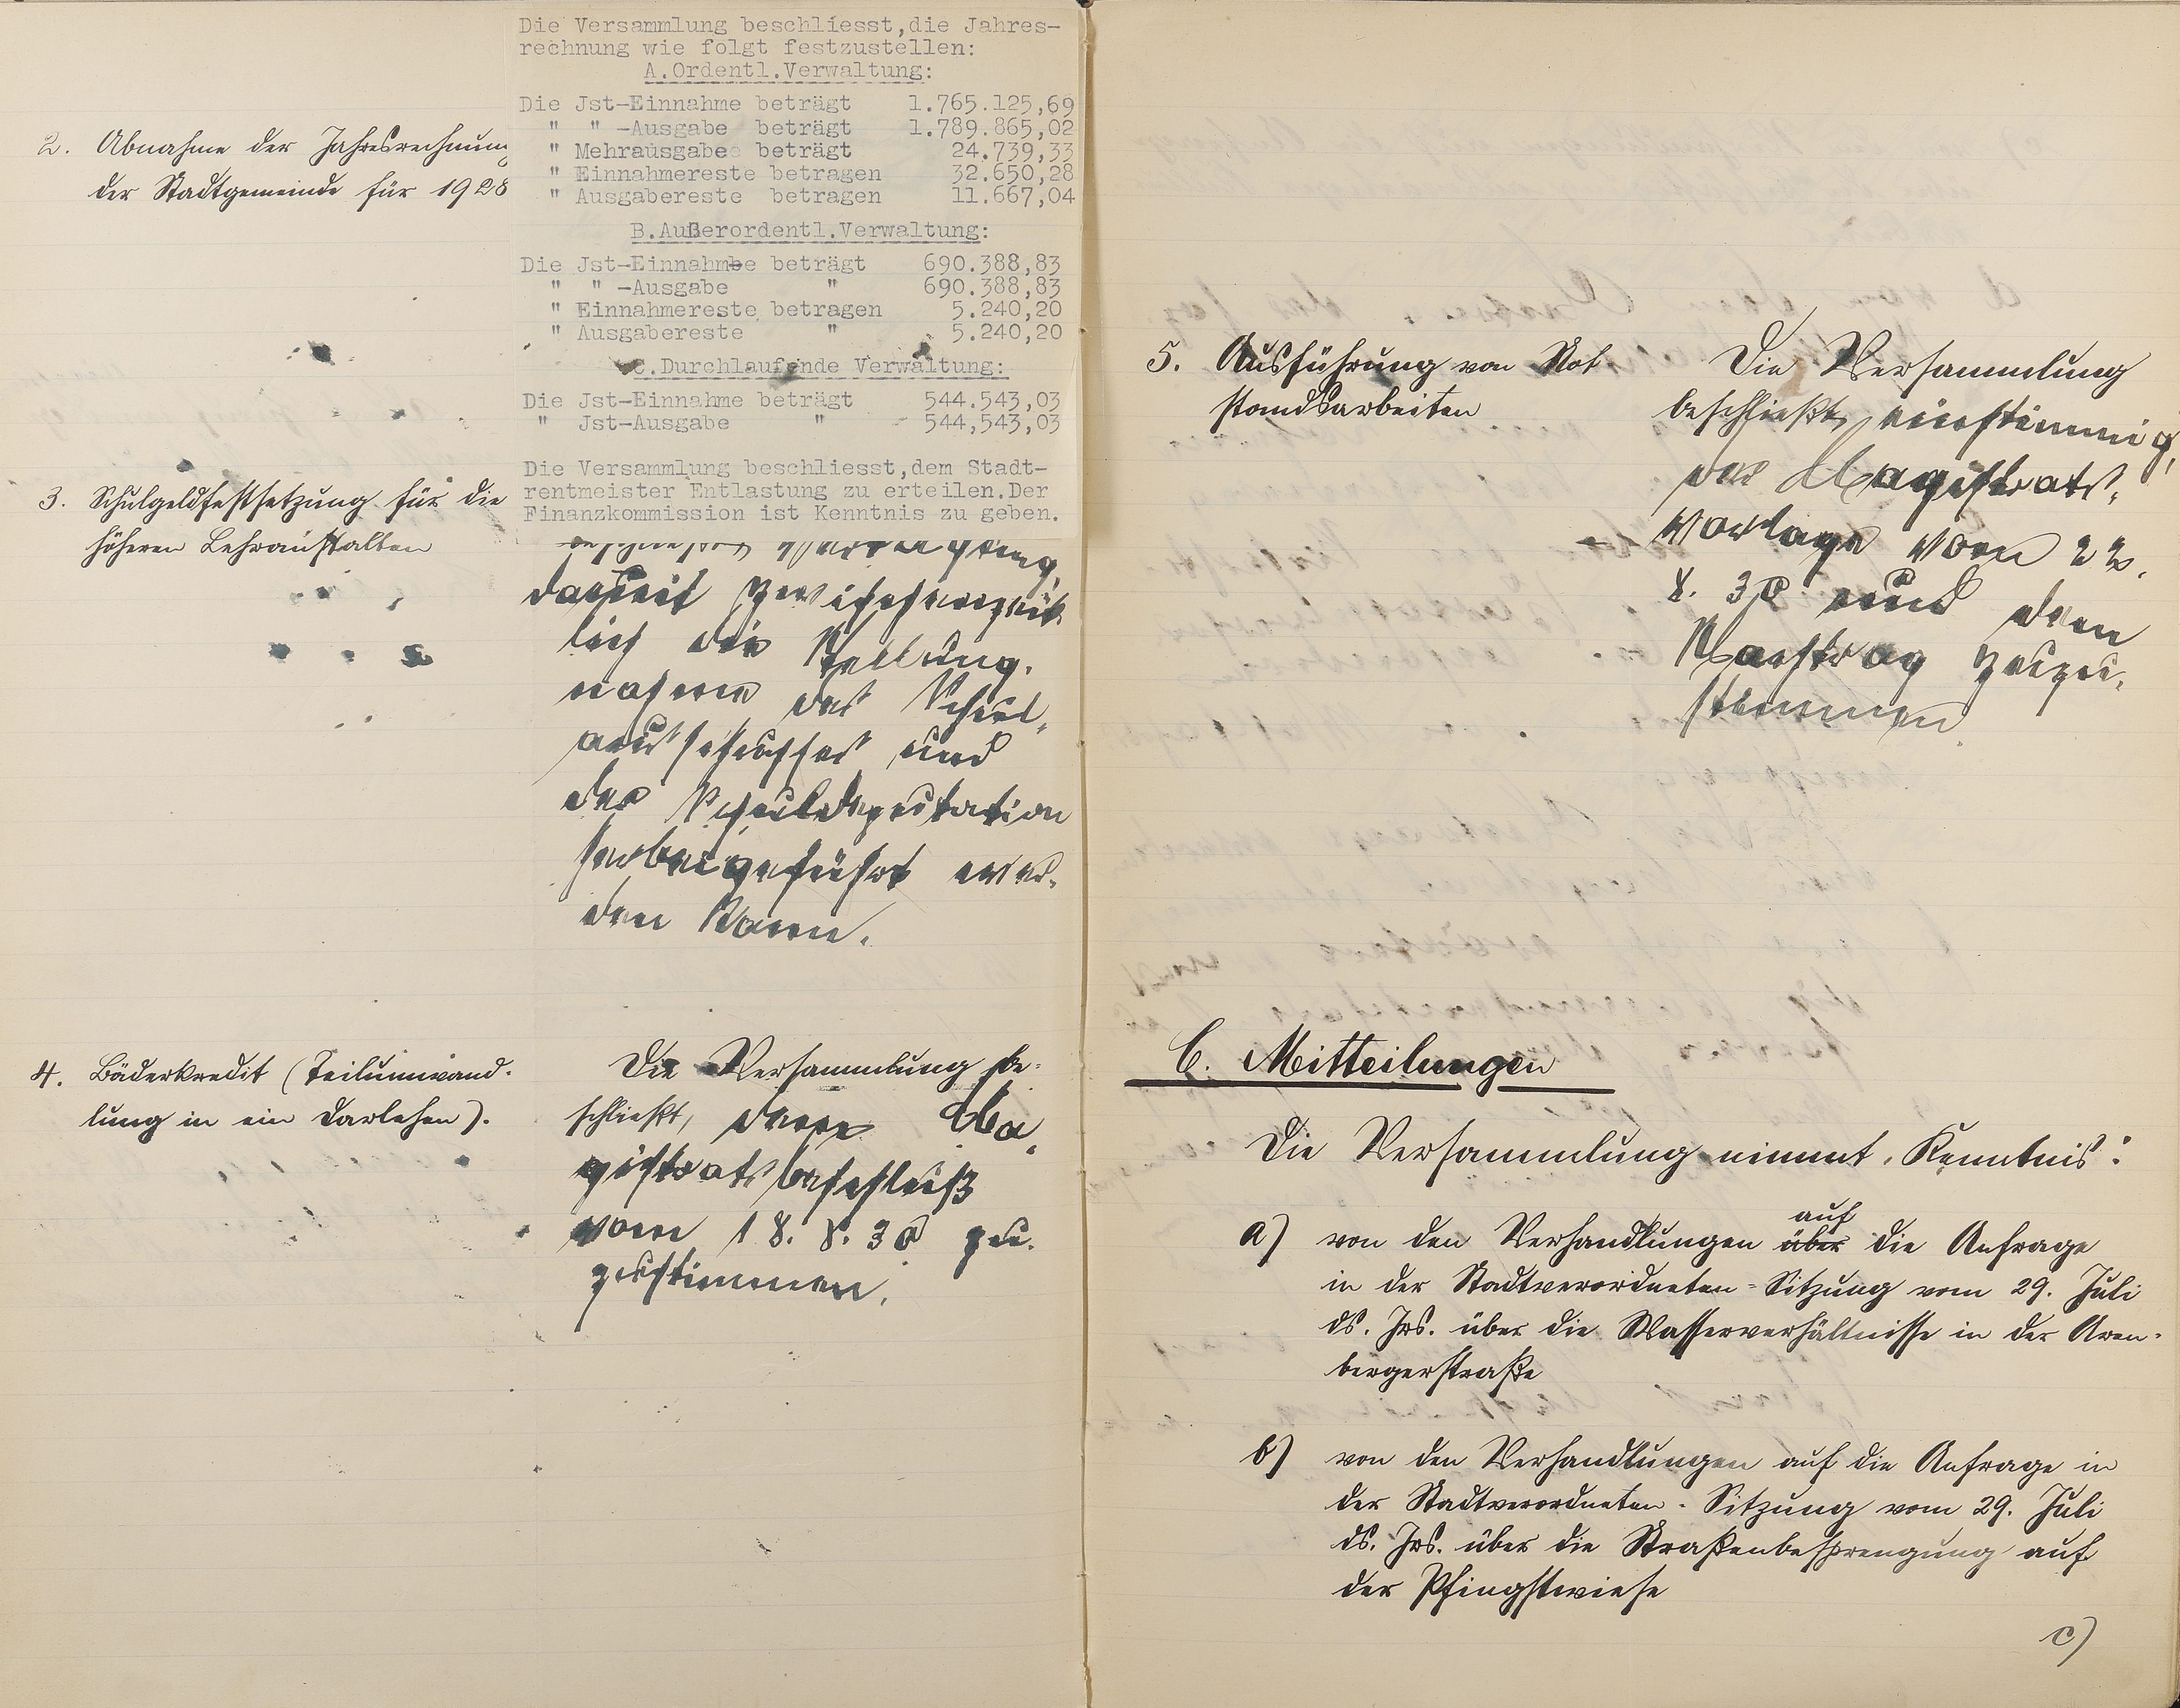 Die Versammlung beschliesst,die Jahres-
rechnung wie folgt festzustellen:
A.Ordentl.Verwaltung:
Die Jst-Einnahme beträgt 1.765.125,69
" " -Ausgabe beträgt 1.789.865,02
" Mehrausgabe beträgt 24.739,33
" Einnahmereste betragen 32.650,28
" Ausgabereste betragen 11.667,04
B.Außerordentl.Verwaltung:
Die Jst-Einnahme beträgt 690.388,83
" " -Ausgabe " 690.388,83
" Einnahmereste betragen 5.240,20
" Ausgabereste " 5.240,20
C.Durchlaufende Verwaltung:
Die Jst-Einnahme beträgt 544.543,03
" Jst-Ausgabe " 544,543,03
Die Versammlung beschliesst,dem Stadt-
rentmeister Entlastung zu erteilen.Der
Finanzkommission ist Kenntnis zu geben.
2. Abnahme der Jahresrechnung
der Stadtgemeinde für 1928
3. Schulgeldfestsetzung für die
höheren Lehranstalten
beschließt Vertagung,
damit zwischenzeit
lich die Stellung-
nahme des Schul-
ausschusses und
der Schuldeputation
herbeigeführt wer-
den kann.
4. Bäderkredit (Teilumwand-
lung in ein Darlehen).
Die Versammlung be-
schließt, dem Ma-
gistratsbeschluß
vom 18. 8. 30 zu-
zustimmen.
5. Ausführung von Not-
standsarbeiten
Die Versammlung
beschließt einstimmig,
der Magistrats-
vorlage vom 22.
8. 30 und dem
Nachtrag zuzu-
stimmen
C. Mitteilungen
Die Versammlung nimmt Kenntnis:
a) von den Verhandlungen über auf die Anfrage
in der Stadtverordneten-Sitzung vom 29. Juli
ds. Jrs. über die Wasserverhältnisse in der Aren-
bergerstraße
b) von den Verhandlungen auf die Anfrage in
der Stadtverordneten-Sitzung vom 29. Juli
ds. Jrs. über die Straßenbesprengung auf
der Pfingstwiese
c)